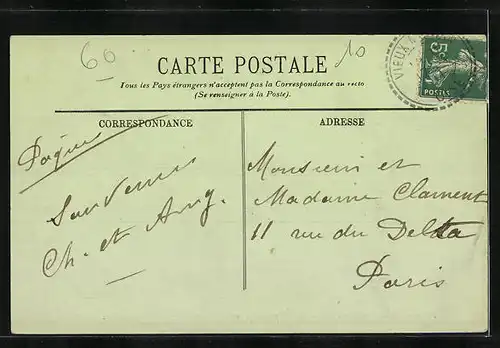 60
10
CARTE POSTALE
Tous les Pays étrangers n'acceptent pas la Correspondance au recto
(Se renseigner à la Poste).
5c
POSTES
VIEUX
CORRESPONDANCE
Pâques
Souvenir
Ch. et Ang.
ADRESSE
Monsieur et
Madame Clament
11 rue du Delta
Paris